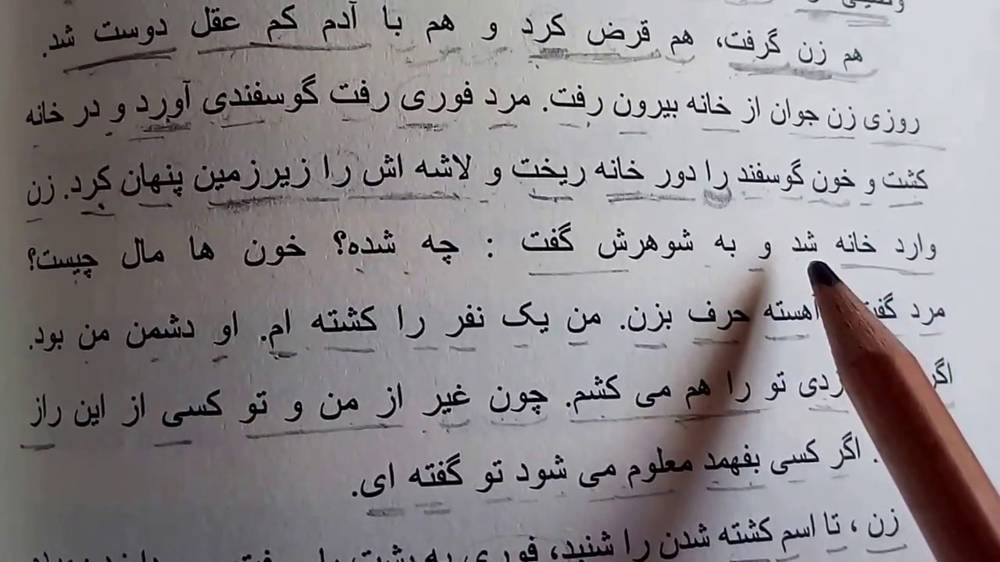 هم زن گرفت، هم قرض کرد و هم با آدم کم عقل دوست شد.
روزی زن جوان از خانه بیرون رفت. مرد فوری رفت گوسفندی آورد و در خانه
کشت و خون گوسفند را دور خانه ریخت و لاشه اش را زیرزمین پنهان کرد. زن
وارد خانه شد و به شوهرش گفت : چه شده؟ خون ها مال چیست؟
مرد آهسته حرف بزن. من یک نفر را کشته ام. او دشمن من بود.
تو را هم می کشم. چون غیر از من و تو کسی از این راز
اگر کسی بفهمد معلوم می شود تو گفته ای.
زن ، تا اسم کشته شدن را شنید، فوری به پشت